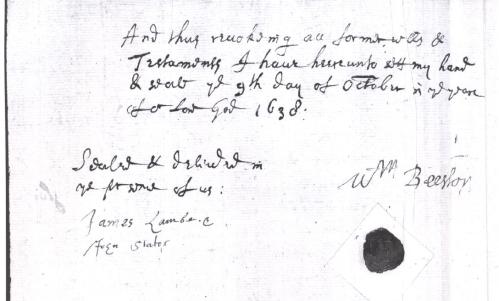 And thus revokeing all former wills &
Testaments I have hereunto sett my hand
& seale ye 9th day of October in ye yeare
of or Lord God 1638.
Sealed & delivered in
ye presence of us:
Wm Beeston
James
Slator